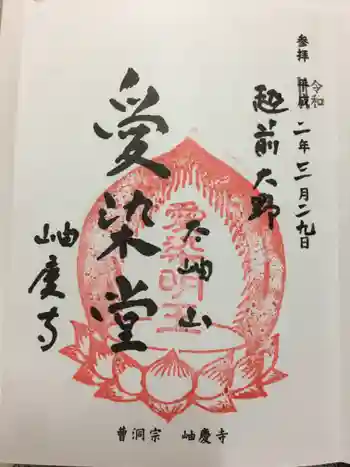 参拝 平成 令和 二年三月二九日
越前大野
愛染堂
大岫山
愛染明王
岫慶寺
曹洞宗 岫慶寺